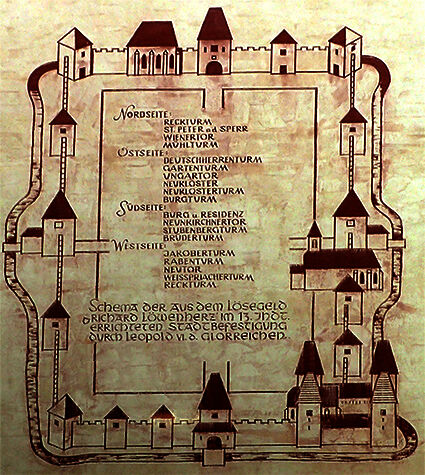 Nordseite:
Reckturm
St. Peter a.d. Sperr
Wienertor
Mühlturm
Ostseite:
Deutschherrenturm
Gartenturm
Ungartor
Neukloster
Neuklosterturm
Burgturm
Südseite:
Burg u. Residenz
Neunkirchnertor
Stubenbergturm
Brüderturm
Westseite:
Jakoberturm
Rabenturm
Neutor
Weisspriacherturm
Reckturm
Schema der aus dem Lösegeld
f. Richard Löwenherz im 13. Jhdt.
errichteten Stadtbefestigung
durch Leopold VI. d. Glorreichen.